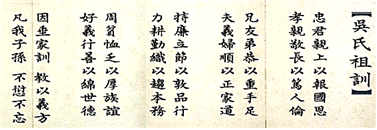 【吳氏祖訓】
忠君親上以報國恩
孝親敬長以篤人倫
兄友弟恭以重手足
夫義婦順以正家道
持廉立節以敦品行
力耕勤織以趨本務
周貧恤乏以厚族誼
好義行善以綿世德
因垂家訓 教以義方
凡我子孫 不愆不忘